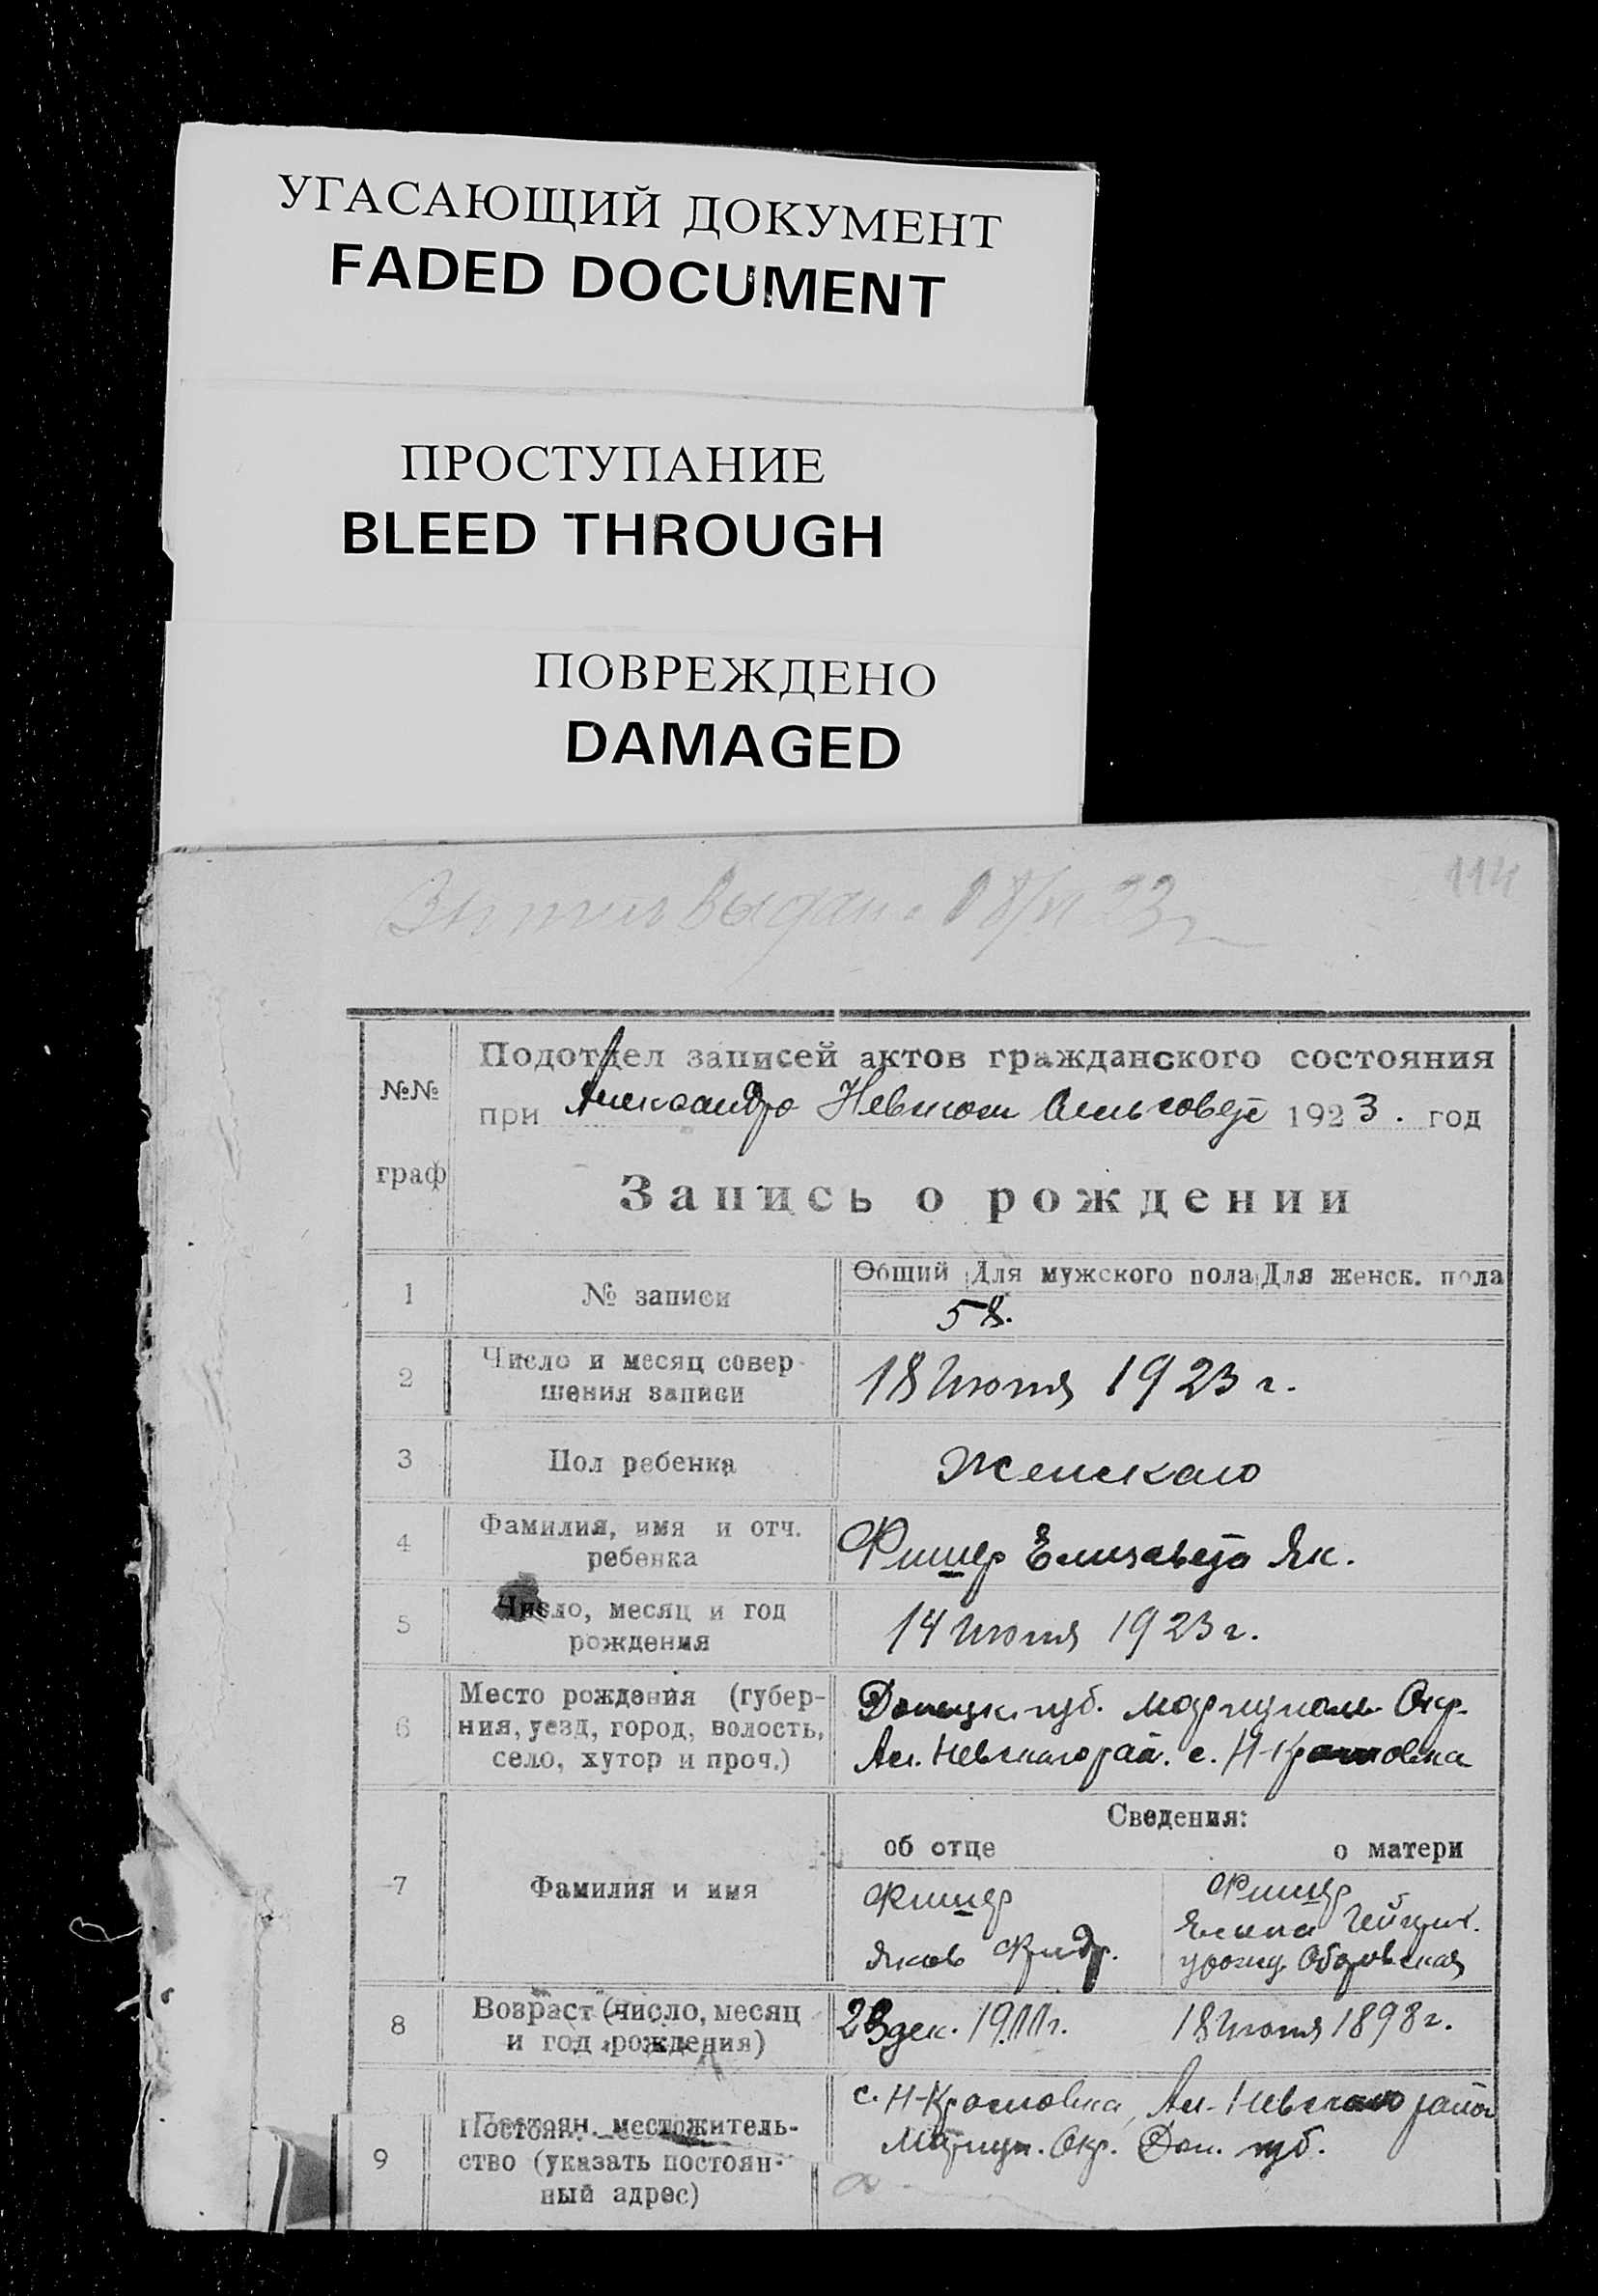 УГАСАЮЩИЙ ДОКУМЕНТ
FADED DOCUMENT
ПРОСТУПАНИЕ
BLEED THROUGH
ПОВРЕЖДЕНО
DAMAGED
114
выдана 18/VI 23 г
№№
граф
Подотдел записей актов гражданского состояния
при Александро Невском Сельсовете 1923. год
Запись о рождении
1
№ записи
Общий Для мужского пола Для женск. пола
58.
2
Число и месяц совер-
шения записи
18 Июня 1923 г.
3
Пол ребенка
Женскаго
4
Фамилия, имя и отч.
ребенка
Фишер Елизавета Як.
5
Число, месяц и год
рождения
14 Июня 1923 г.
6
Место рождения (губер-
ния, уезд, город, волость,
село, хутор и проч.)
Донецк. губ. Мариуполь. Окр.
Ал. Невскаго рай. с. Н-Красновка
7
Фамилия и имя
Сведения:
об отце
о матери
Фишер
Яков Фридр.
Фишер
Елена Гейнрих.
урожд.
8
Возраст (число, месяц
и год рождения)
дек. 19
18 Июня 1898 г.
9
Постоян. местожитель-
ство (указать постоян-
ный адрес)
с. Н-Красновка, Ал-Невскаго района
Мариуп. Окр. Дон. губ.